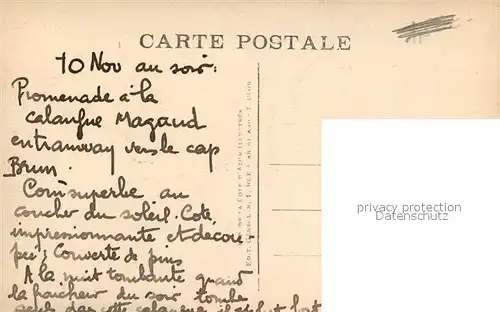 CARTE POSTALE
10 Nov au soir:
Promenade à la
calanque Magaud
en tramway vers le cap
Brun.
Coin superbe au
coucher du soleil. Cote
impressionnante et decou-
pée; converte de pins
A la nuit tombante quand
la fraicheur du soir tombe
cette calanque il fort
privacy protection
Datenschutz